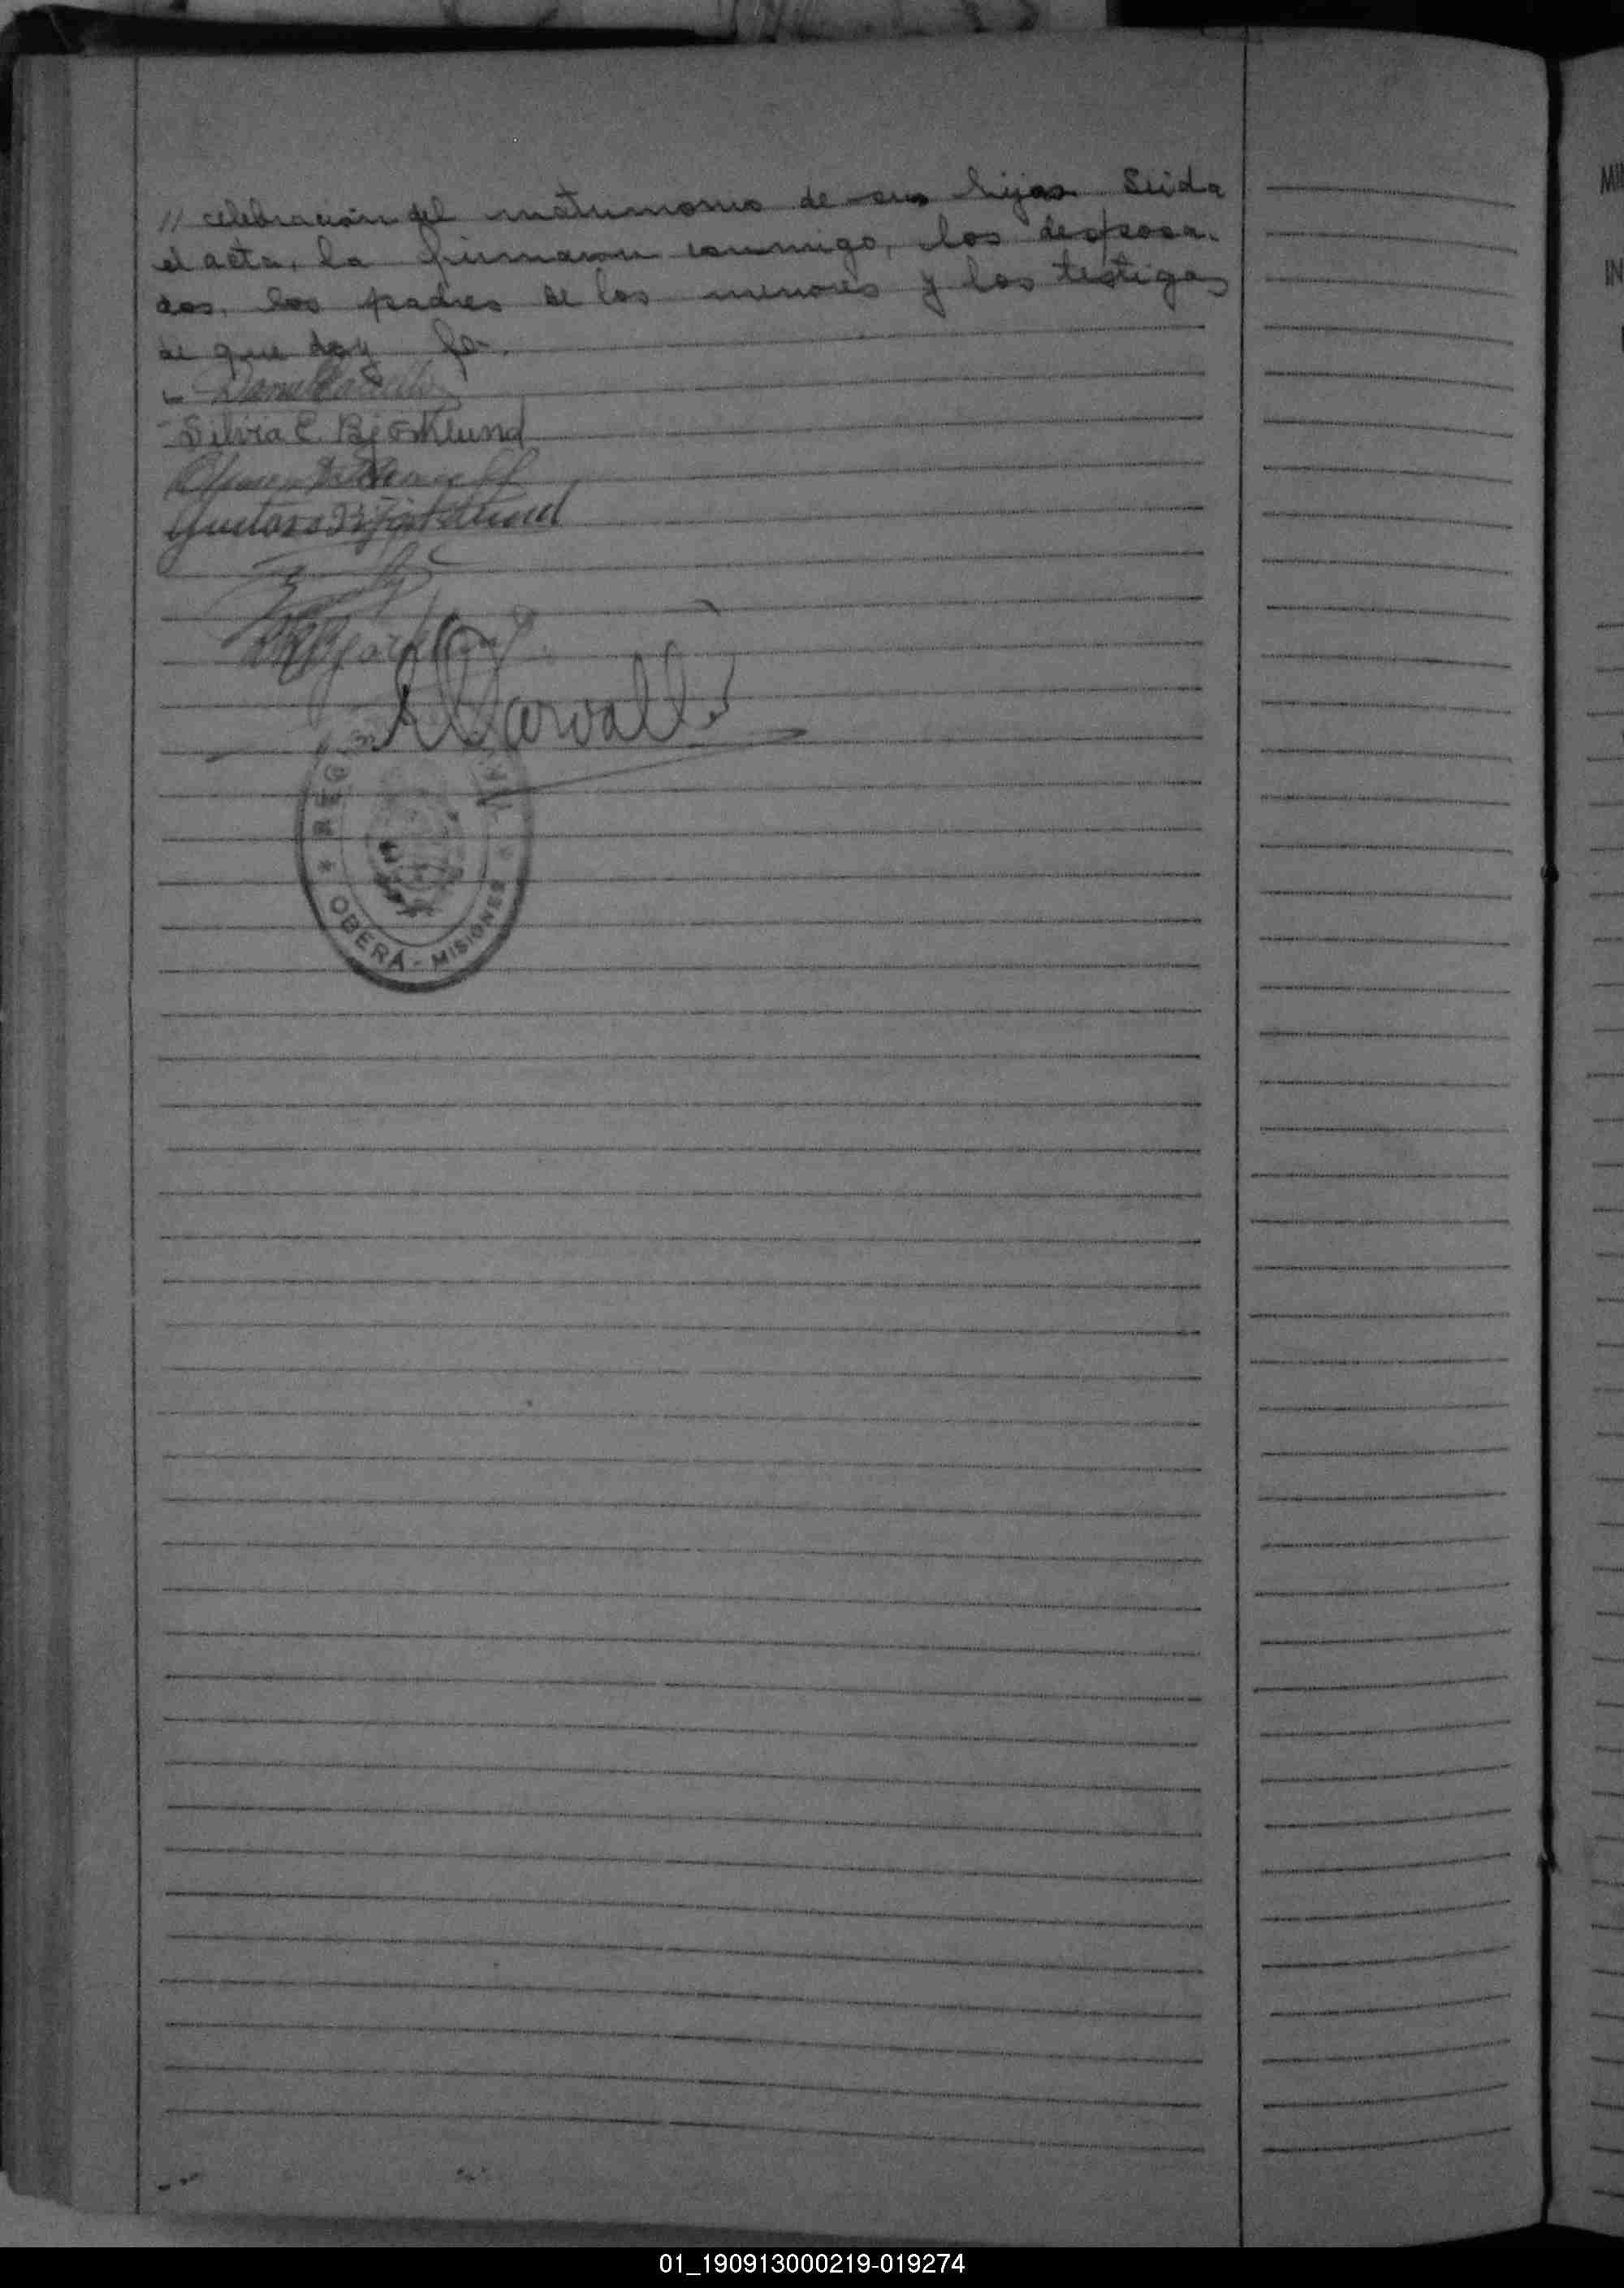 // celebración del matrimonio de sus hijos. Leida
el acta, la firmaron conmigo, los desposa-
dos, los padres de los menores y los testigos
de que doy fe.
Silvia E. Bjorklund
Gustavo Bjorklund
Carvallo
REGISTRO CIVIL
* OBERÁ - MISIONES *
MI
IN
01_190913000219-019274